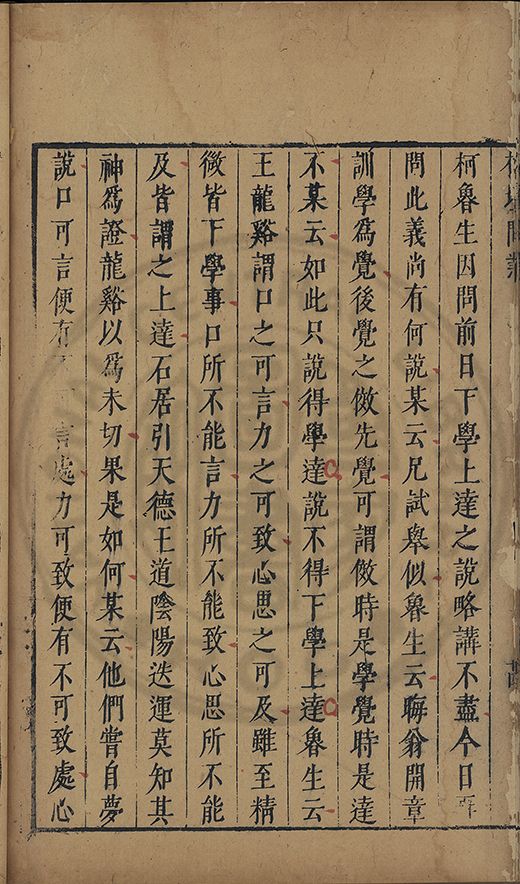 榕壇問業
柯魯生因問前日下學上達之說略講不盡今日再
問此義尚有何說某云兄試舉似魯生云晦翁開章
訓學為覺後覺之傚先覺可謂傚時是學覺時是達
不某云如此只說得學達說不得下學上達魯生云
王龍谿謂口之可言力之可致心思之可及雖至精
微皆下學事口所不能言力所不能致心思所不能
及皆謂之上達石居引天德王道陰陽迭運莫知其
神為證龍谿以為未切果是如何某云他們嘗自夢
說口可言便有不可言處力可致便有不可致處心